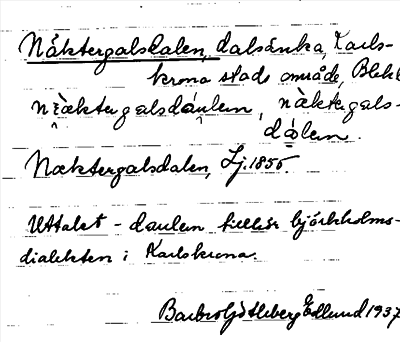 Näktergalsdalen, dalsänka, Karls-
krona stads område, Blek
näktergalsdáulem, näktergals-
dálem.
Næktergalsdalen, Lj. 1855.
Uttalet -daulem tillhör björkholms-
dialekten i Karlskrona.
Barbro Götleberg Edlund 1937